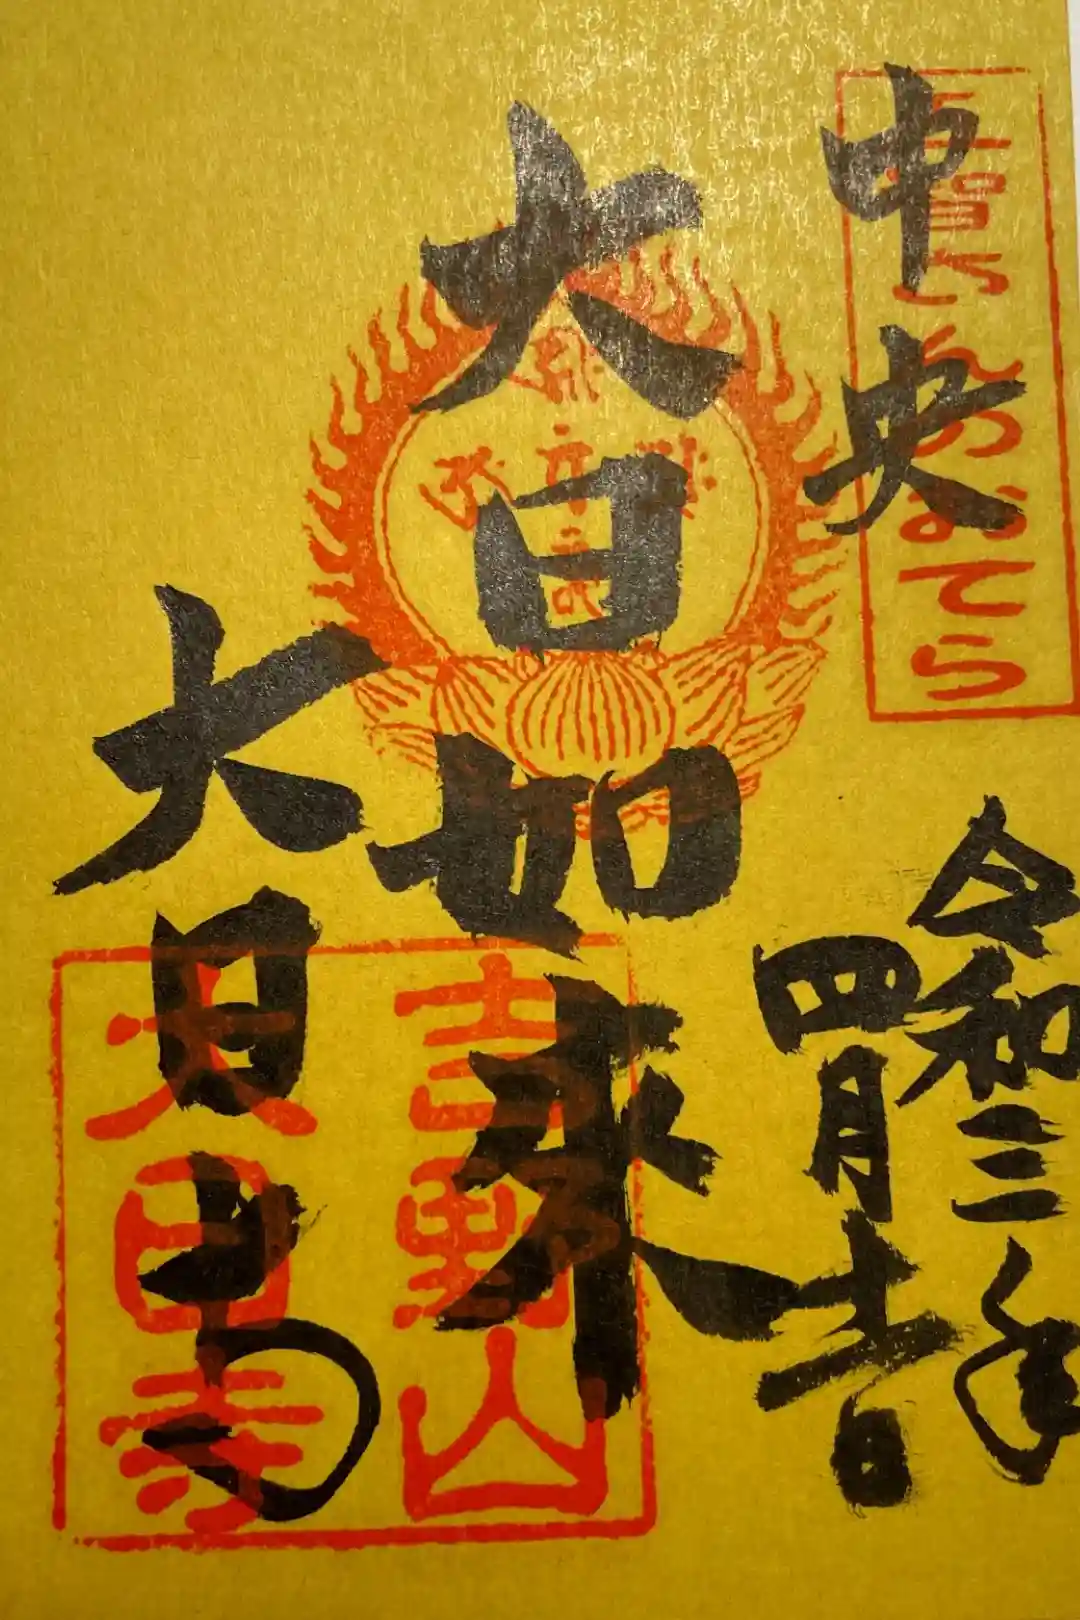 中央
のおてら
令和三年
四月吉日
大日如来
大日寺
吉野山
大日寺